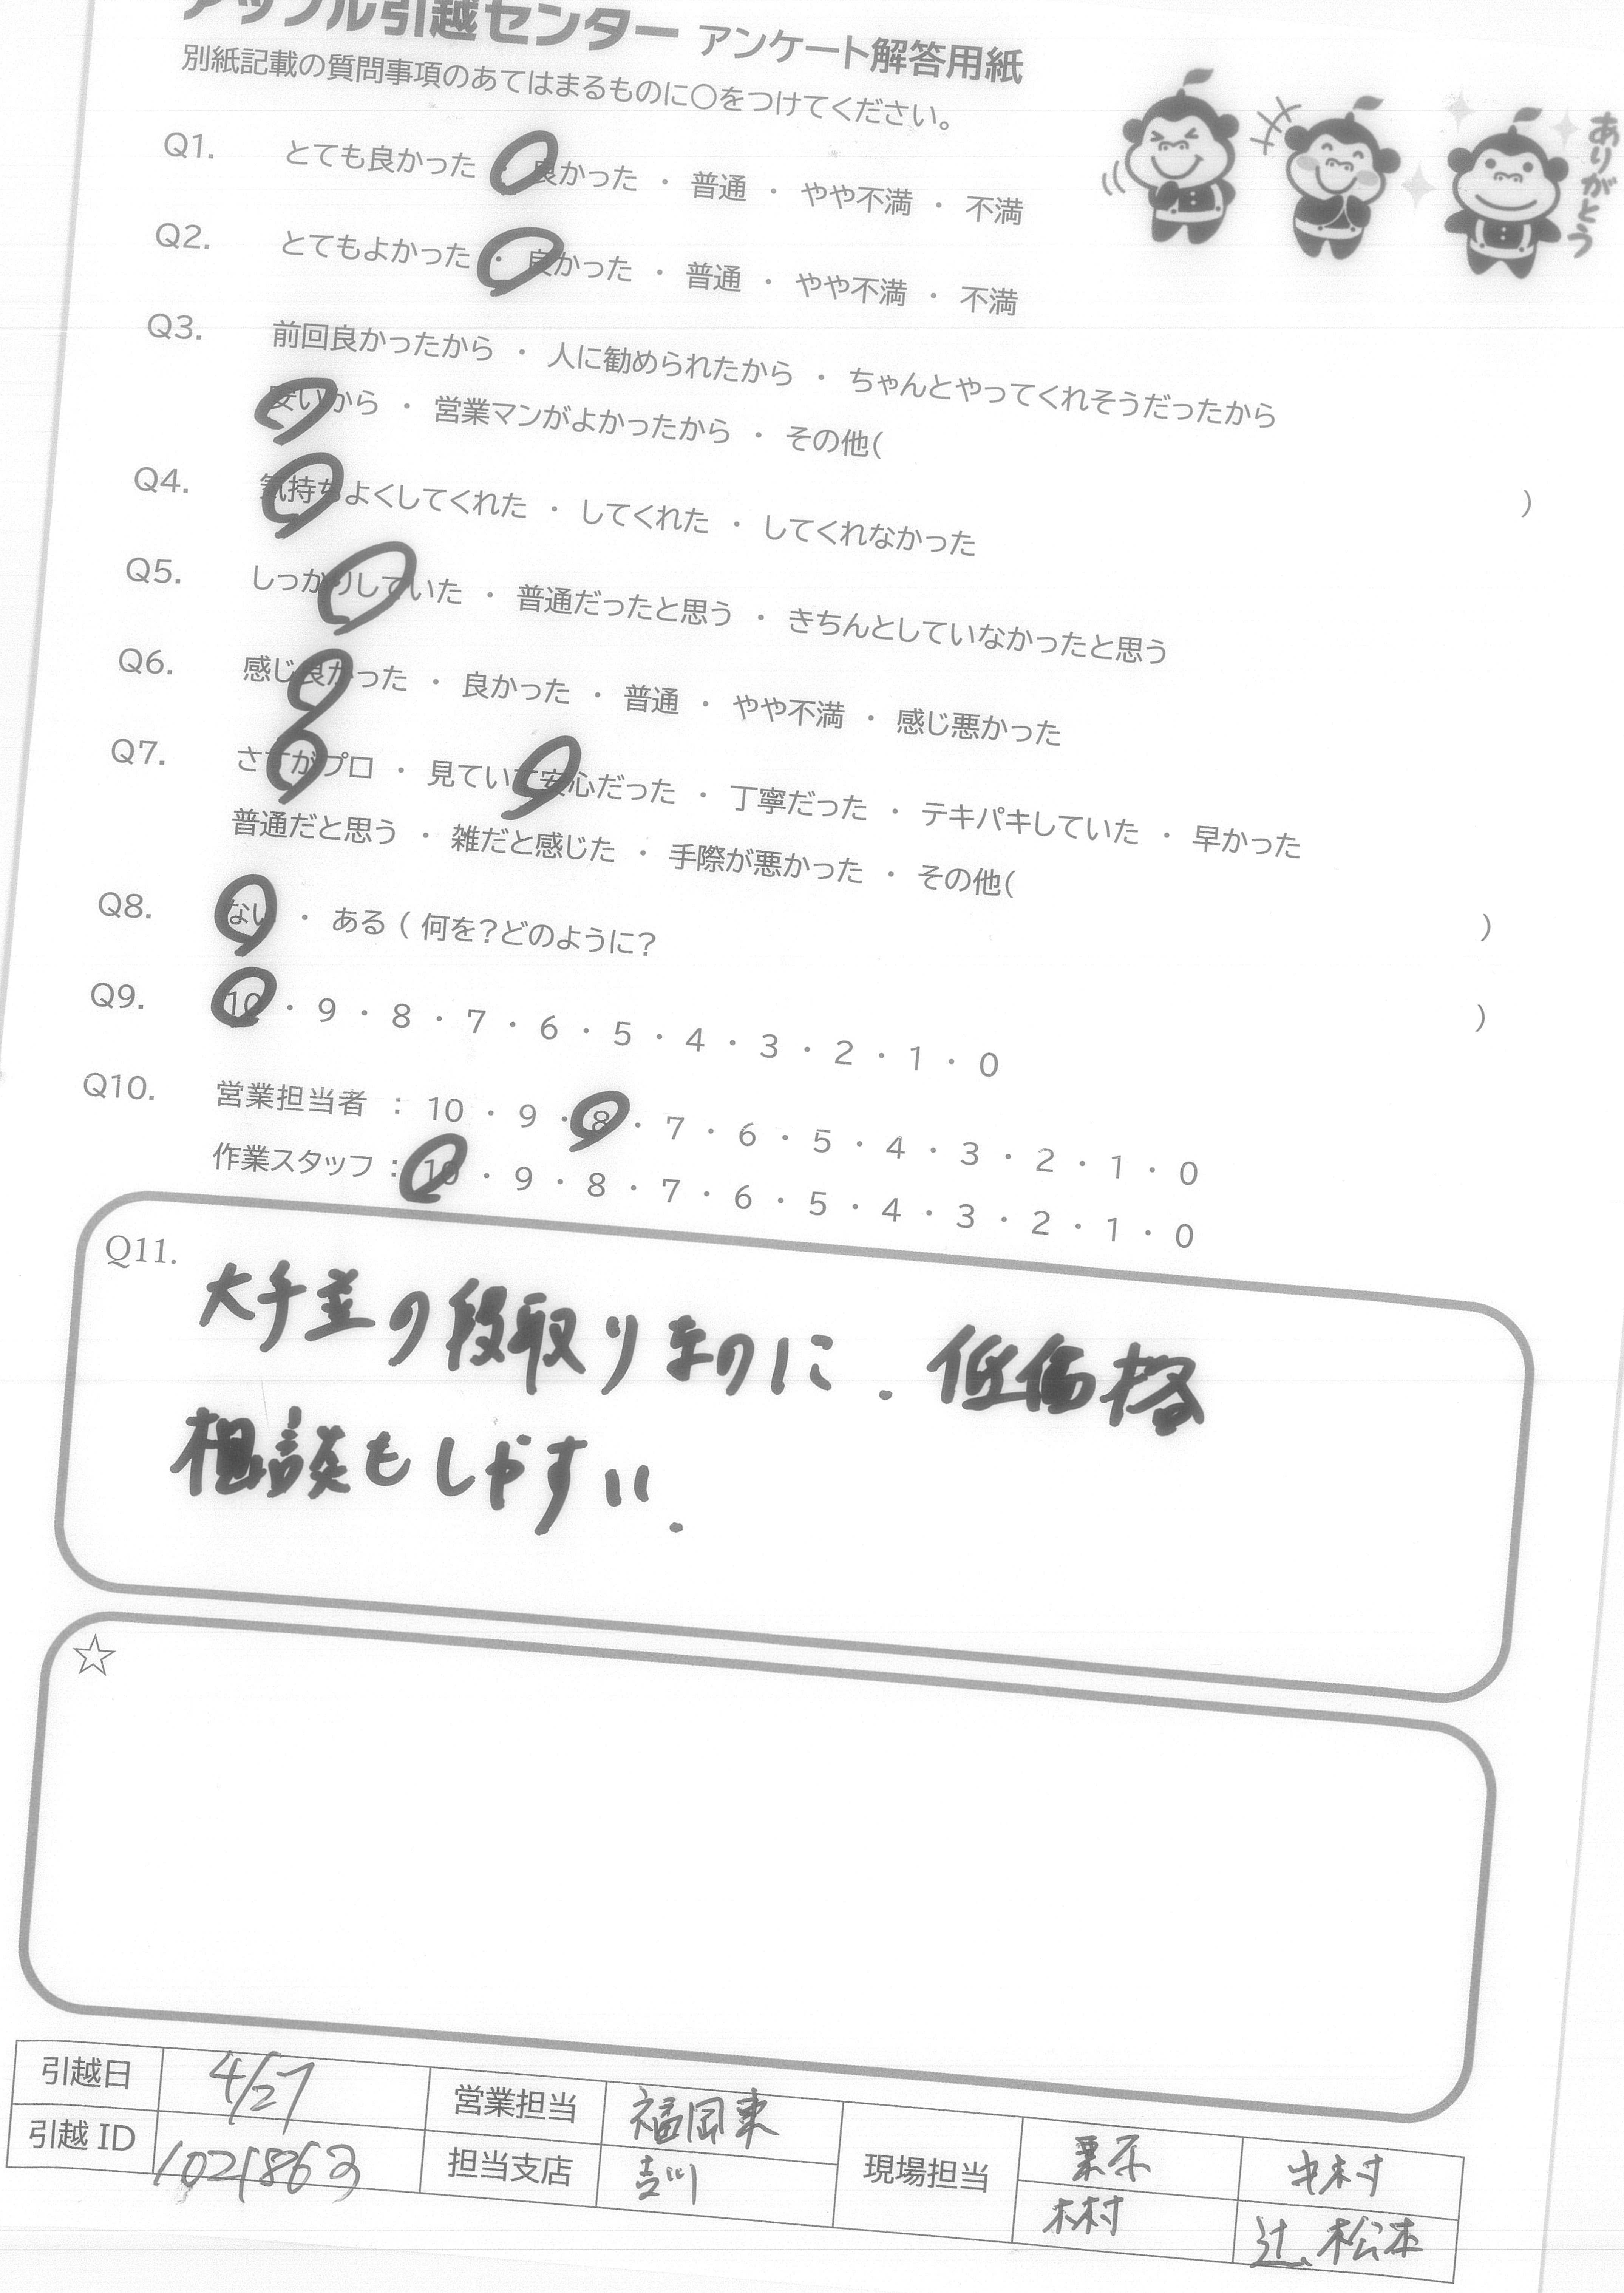 アップル引越センター アンケート解答用紙
別紙記載の質問事項のあてはまるものに○をつけてください。
ありがとう
Q1. とても良かった ・ 良かった ・ 普通 ・ やや不満 ・ 不満
Q2. とてもよかった ・ 良かった ・ 普通 ・ やや不満 ・ 不満
Q3. 前回良かったから ・ 人に勧められたから ・ ちゃんとやってくれそうだったから
安いから ・ 営業マンがよかったから ・ その他( )
Q4. 気持ちよくしてくれた ・ してくれた ・ してくれなかった
Q5. しっかりしていた ・ 普通だったと思う ・ きちんとしていなかったと思う
Q6. 感じ良かった ・ 良かった ・ 普通 ・ やや不満 ・ 感じ悪かった
Q7. さすがプロ ・ 見ていて安心だった ・ 丁寧だった ・ テキパキしていた ・ 早かった
普通だと思う ・ 雑だと感じた ・ 手際が悪かった ・ その他( )
Q8. ない ・ ある ( 何を?どのように? )
Q9. 10 ・ 9 ・ 8 ・ 7 ・ 6 ・ 5 ・ 4 ・ 3 ・ 2 ・ 1 ・ 0
Q10. 営業担当者 : 10 ・ 9 ・ 8 ・ 7 ・ 6 ・ 5 ・ 4 ・ 3 ・ 2 ・ 1 ・ 0
作業スタッフ : 10 ・ 9 ・ 8 ・ 7 ・ 6 ・ 5 ・ 4 ・ 3 ・ 2 ・ 1 ・ 0
Q11.
大手並の段取りなのに.低価格
相談もしやすい.
☆
引越日 4/27 営業担当 福岡東 現場担当 栗原 中村
引越ID 1021863 担当支店 吉川 木村 辻、松本